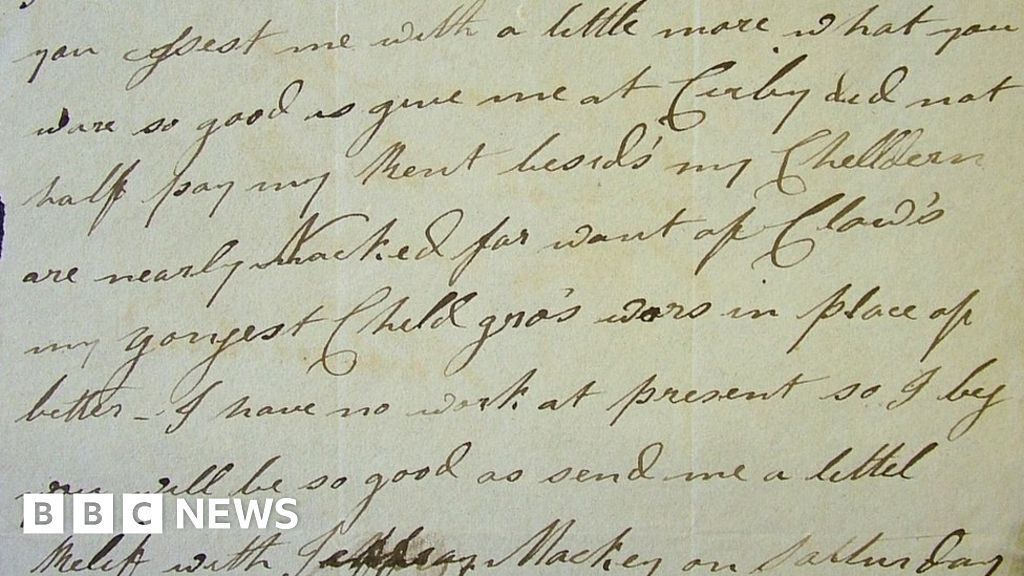 you assest me with a little more what you
ware so good as give me at Cirby did not
half pay my Rent besid's my Chelldern
are nearly Nacked for want of Clows
my yongest Cheld gro's wors in place of
better - I have no work at present so I beg
you will be so good as send me a littel
Relif with Mackey on Satturday
BBC NEWS